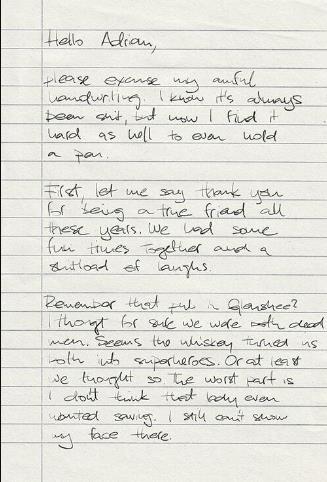 Hello Adrian,
please excuse my awful
handwriting. I know it's always
been shit, but now I find it
hard as hell to even hold
a pen.
First, let me say thank you
for being a true friend all
these years. We had some
fun times together and a
shitload of laughs.
Remember that pub in Glenshee?
I thought for sure we were both dead
men. Seems the whiskey turned us
both into superheroes. Or at least
we thought so. The worst part is
I don't think that lady even
wanted saving. I still can't show
my face there.